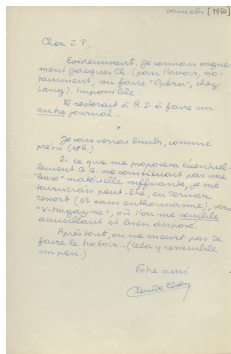 samedi [1950]
Cher J. P.,
Evidemment, je connais vague-
ment Jacques Ch. (pour l'avoir, no-
tamment, vu faire "Opéra", chez
Lang). Impossible.
Il resterait à R.D. à faire un
autre journal...
*
Je vous verrai lundi, comme
prévu (18h.)
Si ce que me proposera éventuel-
lement A.G. ne constituait pas une
"base" matérielle suffisante, je me
tournerais peut-être, en dernier
ressort (et sans enthousiasme), vers
"V-Magazine", où l'on me semble
accueillant et bien disposé.
Après tout, on ne meurt pas de
faire le trottoir... (Cela y ressemble
un peu.)
Votre ami